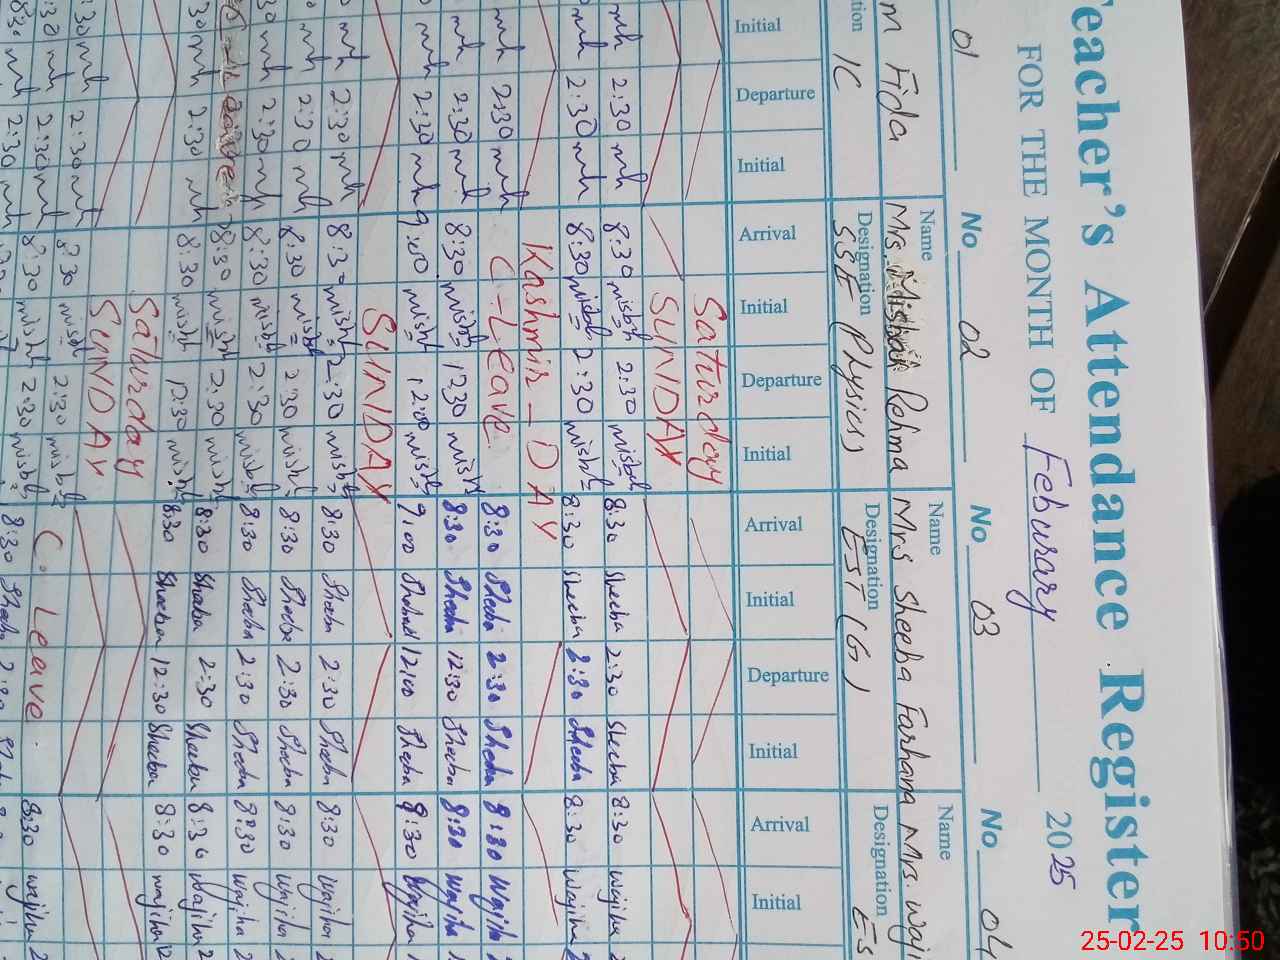 Teacher's Attendance Register
FOR THE MONTH OF Feburary 2025
01
No 02
No 03
No 04
m Fida
Name Mrs. Misbah Rehma
Name Mrs Sheeba Farhana
Name Mrs. Waji
IC
Designation SSE (Physics)
Designation EST (G)
Designation ES
Initial Departure Initial Arrival Initial Departure Initial Arrival Initial Departure Initial Arrival Initial
Saturday
SUNDAY
2:30 mh 8:30 misbah 2:30 misbah 8:30 Sheeba 2:30 Sheeba 8:30 Wajiha
mh 2:30 mh 8:30 misbah 2:30 misbah 8:30 Sheeba 2:30 Sheeba 8:30 Wajiha
Kashmir - DAY
mh 2:30 mh C-Leave 8:30 Sheeba 2:30 Sheeba 8:30 Wajiha
mh 2:30 mh 8:30 misbah 12:30 misbah 8:30 Sheeba 12:30 Sheeba 8:30 Wajiha
mh 2:30 mh 9:00 misbah 12:00 misbah 9:00 Sheeba 12:00 Sheeba 9:30 Wajiha
SUNDAY
mh 2:30 mh 8:30 misbah 2:30 misbah 8:30 Sheeba 2:30 Sheeba 8:30 Wajiha
mh 2:30 mh 8:30 misbah 2:30 misbah 8:30 Sheeba 2:30 Sheeba 8:30 Wajiha
30 mh 2:30 mh 8:30 misbah 2:30 misbah 8:30 Sheeba 2:30 Sheeba 8:30 Wajiha
8:30 misbah 2:30 misbah 8:30 Sheeba 2:30 Sheeba 8:30 Wajiha
30 mh 2:30 mh 8:30 misbah 12:30 misbah 8:30 Sheeba 12:30 Sheeba 8:30 Wajiha
Saturday
SUNDAY
30 mh 2:30 mh 8:30 misbah 2:30 misbah C. Leave 8:30 Wajiha
30 mh 2:30 mh 8:30 misbah 2:30 misbah 8:30 Sheeba 2:30
25-02-25 10:50